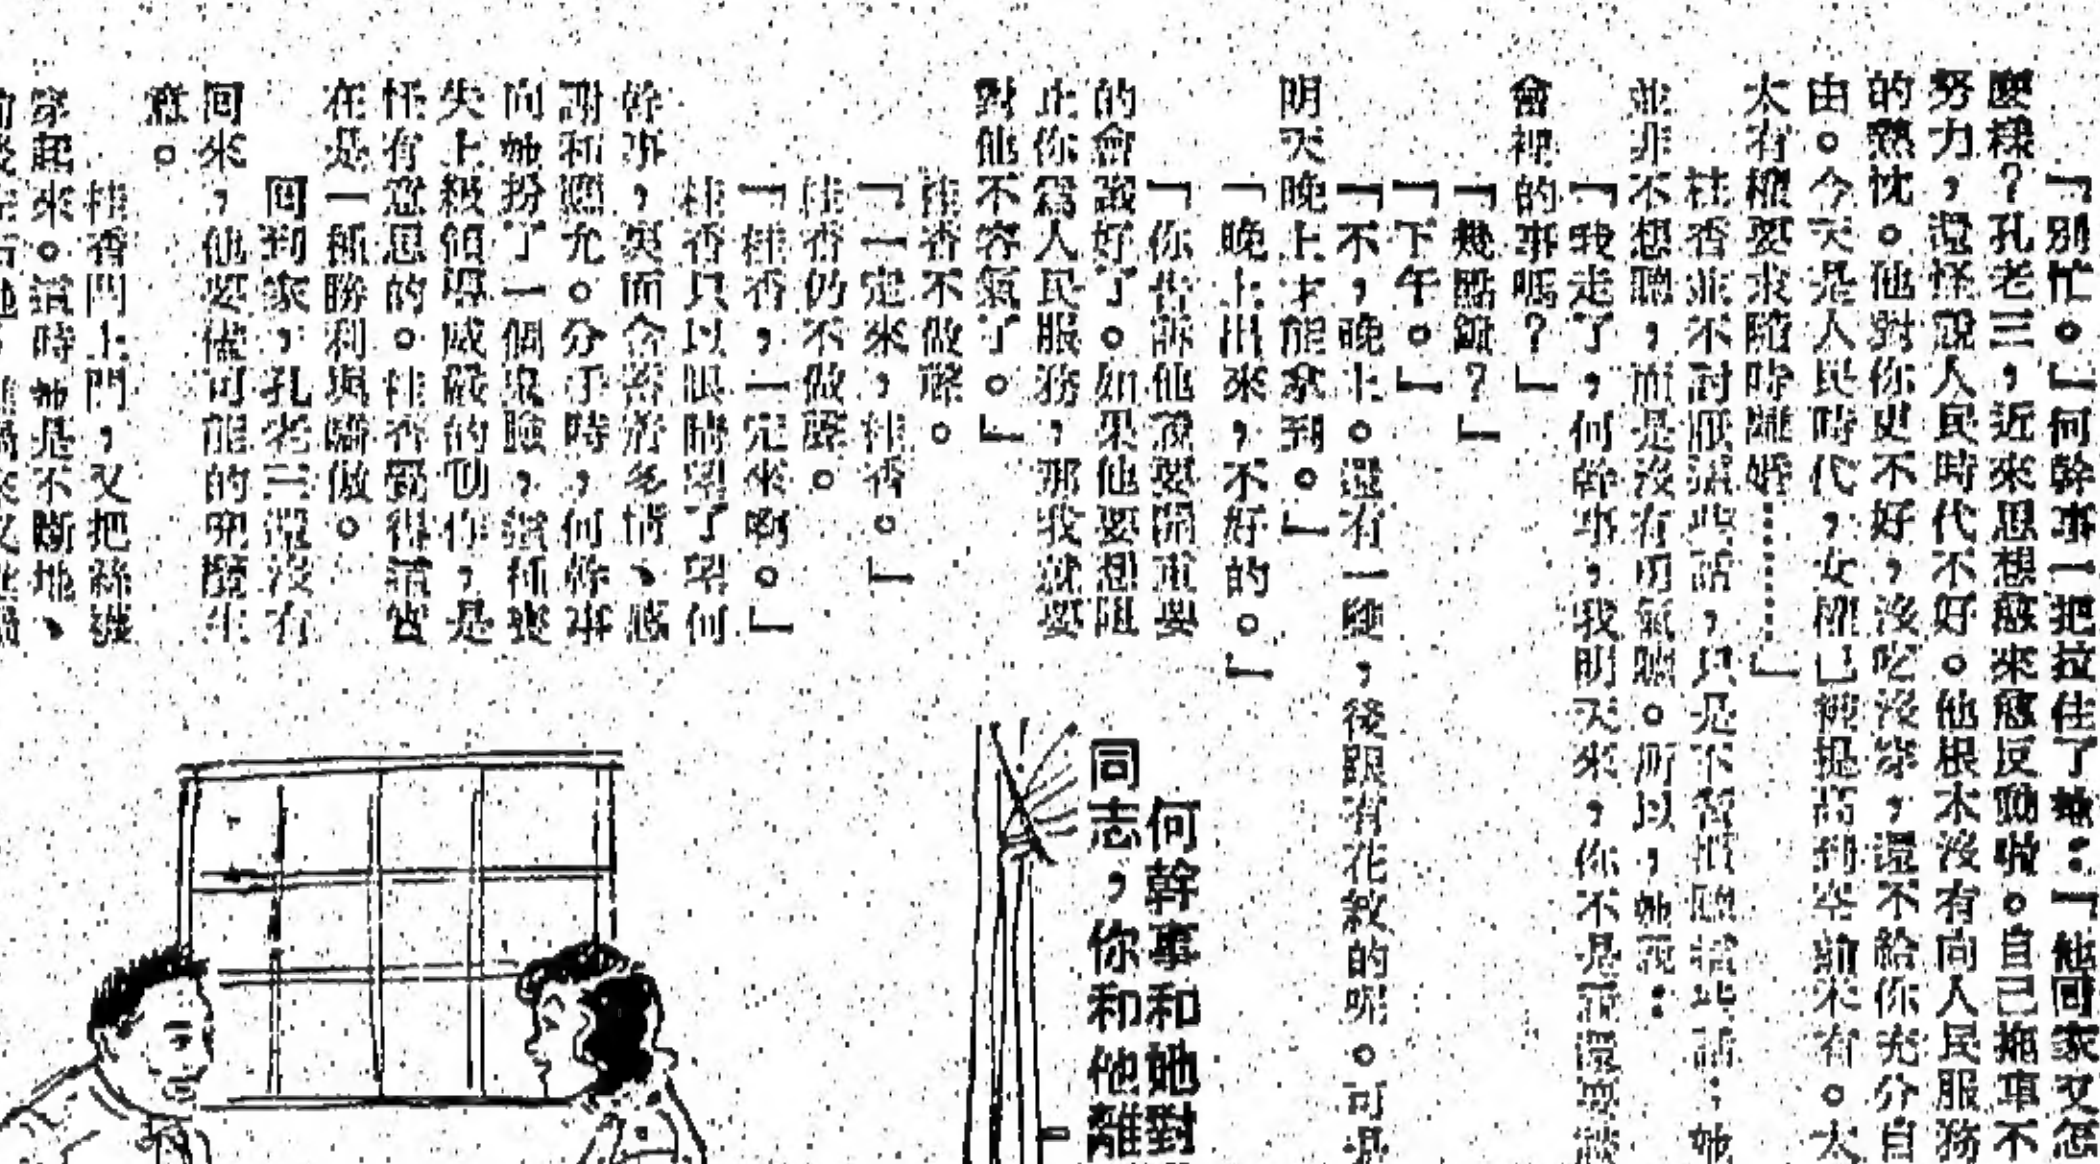 「別忙。」何幹事一把拉住了她：「他回家又怎
麼樣？孔老三，近來思想愈來愈反動啦。自己拖車不
努力，還怪說人民時代不好。他根本沒有向人民服務
的熱忱。他對你更不好，沒吃沒穿，還不給你充分自
由。今天是人民時代，女權已被提高到空前未有。太
太有權要求隨時離婚………」
桂香並不討厭這些話，只是不習慣聽這些話；她
並非不想聽，而是沒有勇氣聽。所以，她說：
「我走了，何幹事，我明天來，你不是說還要談
會裡的事嗎？」
「幾點鐘？」
「下午。」
「不，晚上。還有一雙，後跟有花紋的呢。可是
明天晚上才能拿到。」
「晚上出來，不好的。」
「你告訴他說要開重要
的會議好了。如果他要想阻
止你為人民服務，那我就要
對他不客氣了。」
桂香不做聲。
「一定來，桂香。」
桂香仍不做聲。
「桂香，一定來啊。」
桂香只以眼睛望了望何
幹事，奧而含着許多情、感
謝和應允。分手時，何幹事
向她扮了一個鬼臉，這種喪
失上級領導威嚴的動作，是
怪有意思的。桂香覺得這實
在是一種勝利與驕傲。
回到家，孔老三還沒有
回來，他要儘可能的兜攬生
意。
桂香閂上門，又把絲襪
穿起來。這時她是不斷地、
何幹事和她對
同志，你和他離